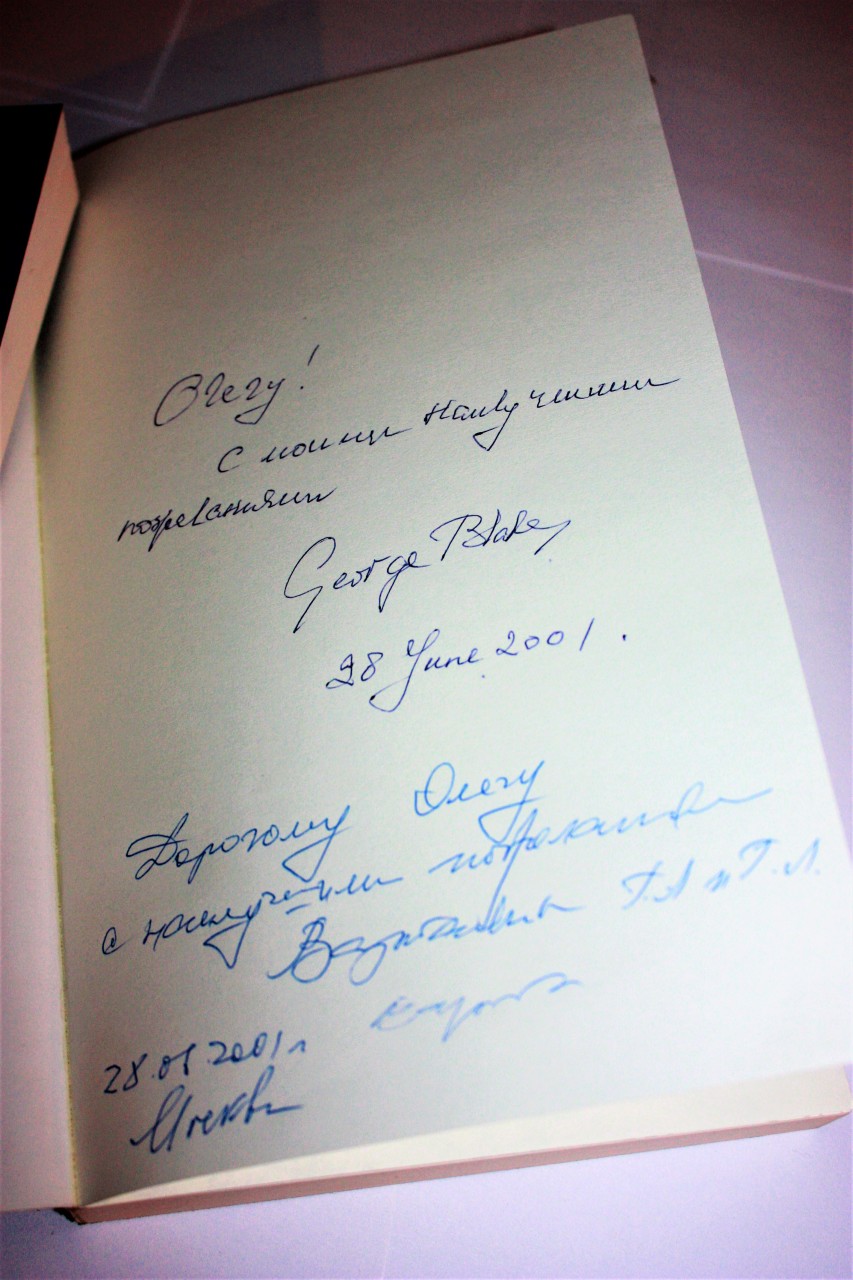 Олегу!
С моими наилучшими
пожеланиями
George Blake,
28 June 2001.
Дорогому Олегу
с наилучшими пожеланиями
Г.А и Г.А.
2001г
Москва